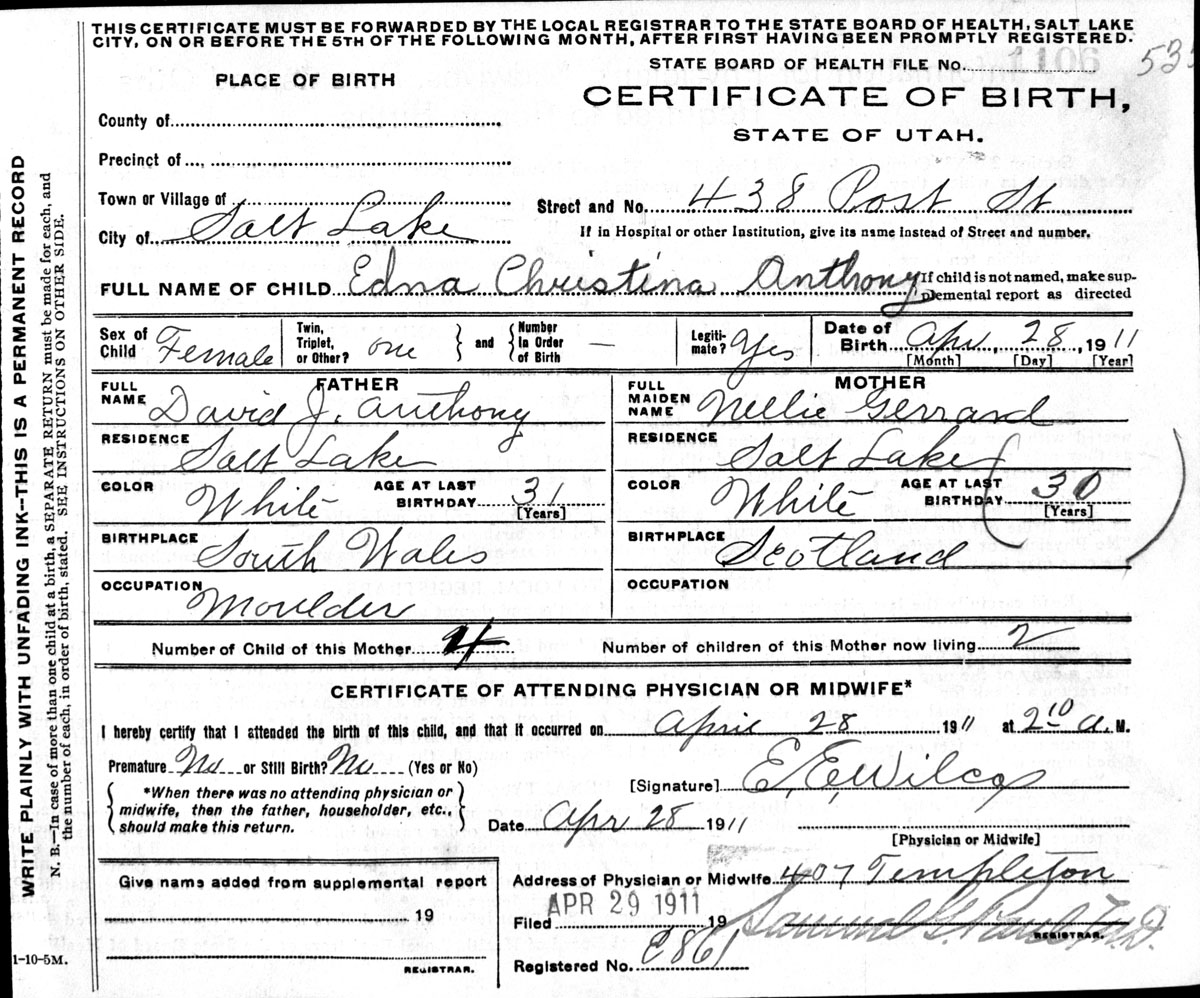 THIS CERTIFICATE MUST BE FORWARDED BY THE LOCAL REGISTRAR TO THE STATE BOARD OF HEALTH, SALT LAKE
CITY, ON OR BEFORE THE 5TH OF THE FOLLOWING MONTH, AFTER FIRST HAVING BEEN PROMPTLY REGISTERED.
STATE BOARD OF HEALTH FILE No. 1106 53
PLACE OF BIRTH
CERTIFICATE OF BIRTH,
STATE OF UTAH.
County of
Precinct of
Town or Village of
Street and No. 438 Post St
City of Salt Lake
If in Hospital or other Institution, give its name instead of Street and number.
FULL NAME OF CHILD Edna Christina Anthony
If child is not named, make sup-
plemental report as directed
Sex of Child Female
Twin, Triplet, or Other? one
and
Number In Order of Birth —
Legiti-mate? Yes
Date of Birth Apr, 28, 1911
[Month] [Day] [Year]
FATHER
FULL NAME David J. Anthony
RESIDENCE Salt Lake
COLOR White AGE AT LAST BIRTHDAY 31
[Years]
BIRTHPLACE South Wales
OCCUPATION Moulder
MOTHER
FULL MAIDEN NAME Nellie Gerrand
RESIDENCE Salt Lake
COLOR White AGE AT LAST BIRTHDAY 30
[Years]
BIRTHPLACE Scotland
OCCUPATION
Number of Child of this Mother 4 Number of children of this Mother now living 2
CERTIFICATE OF ATTENDING PHYSICIAN OR MIDWIFE*
I hereby certify that I attended the birth of this child, and that it occurred on April 28 1911 at 2 10 a. M.
Premature No or Still Birth? No (Yes or No)
*When there was no attending physician or
midwife, then the father, householder, etc.,
should make this return.
[Signature] E. E. Wilcox
Date Apr 28 1911
[Physician or Midwife]
Give name added from supplemental report
19
REGISTRAR.
Address of Physician or Midwife 407 Templeton
Filed APR 29 1911 19 Samuel G. Paul M.D.
REGISTRAR.
Registered No. E861
1-10-5M.
WRITE PLAINLY WITH UNFADING INK—THIS IS A PERMANENT RECORD
N. B.—In case of more than one child at a birth, a SEPARATE RETURN must be made for each, and
the number of each, in order of birth, stated. SEE INSTRUCTIONS ON OTHER SIDE.